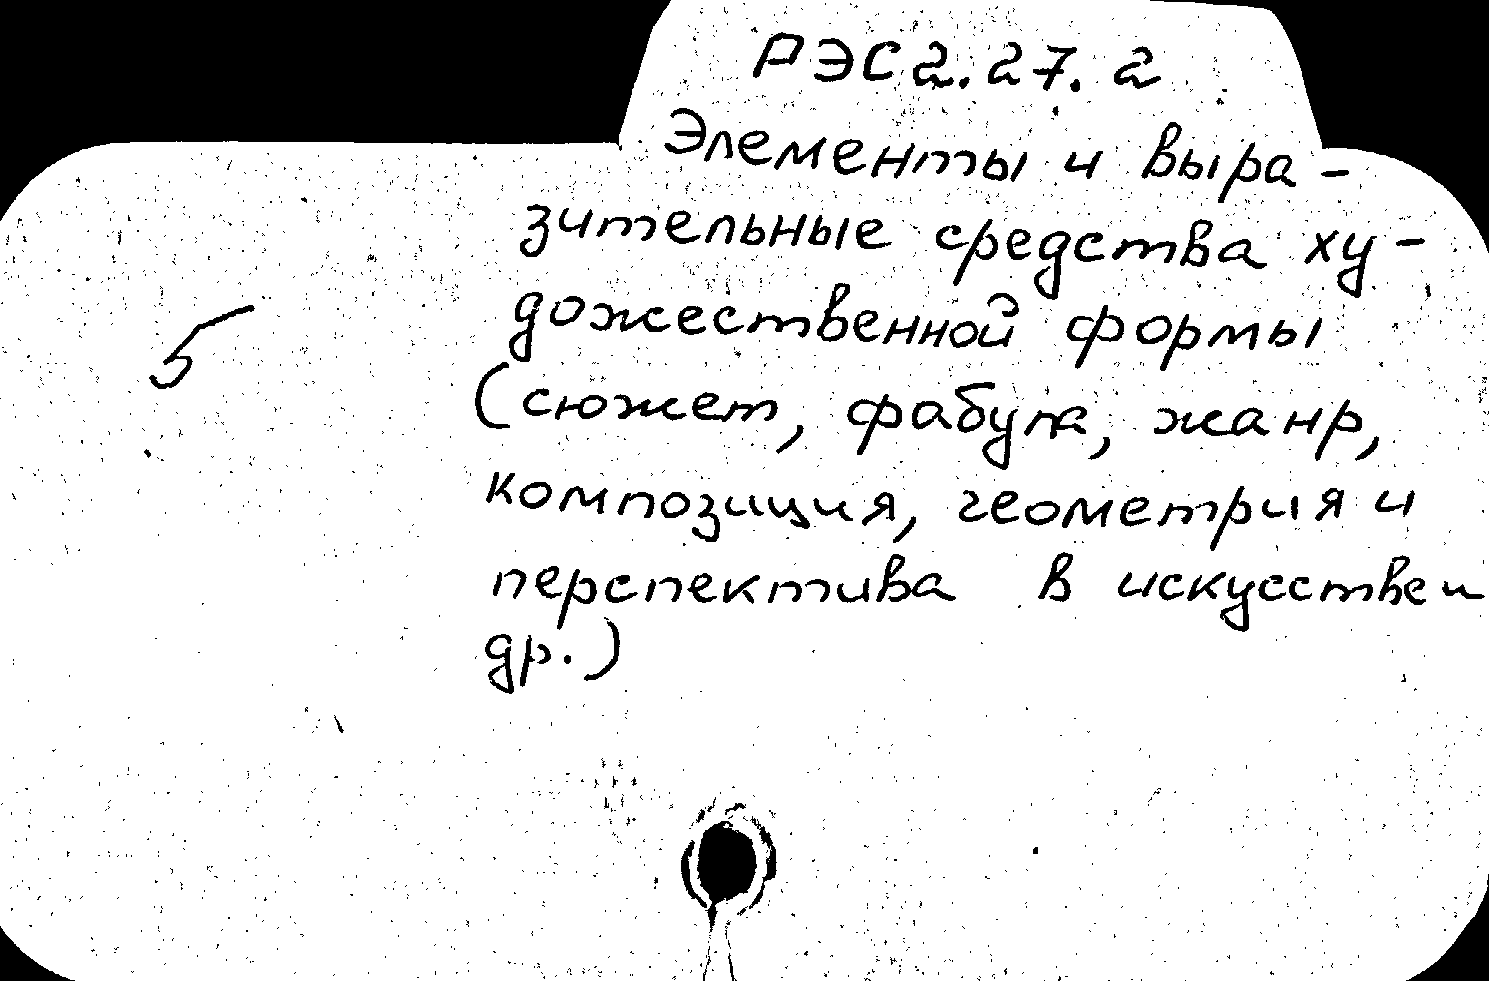 РЭС 2.27.2
Элементы и выра-
зительные средства ху-
дожественной формы
5
(сюжет, фабула, жанр,
композиция, геометрия и
перспектива в искусстве и
др.)